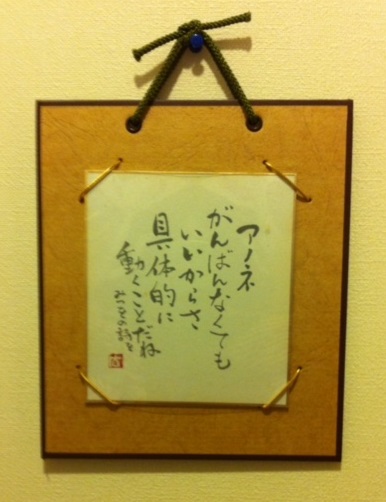 アノネ
がんばんなくても
いいからさ
具体的に
動くことだね
みつをの詩を